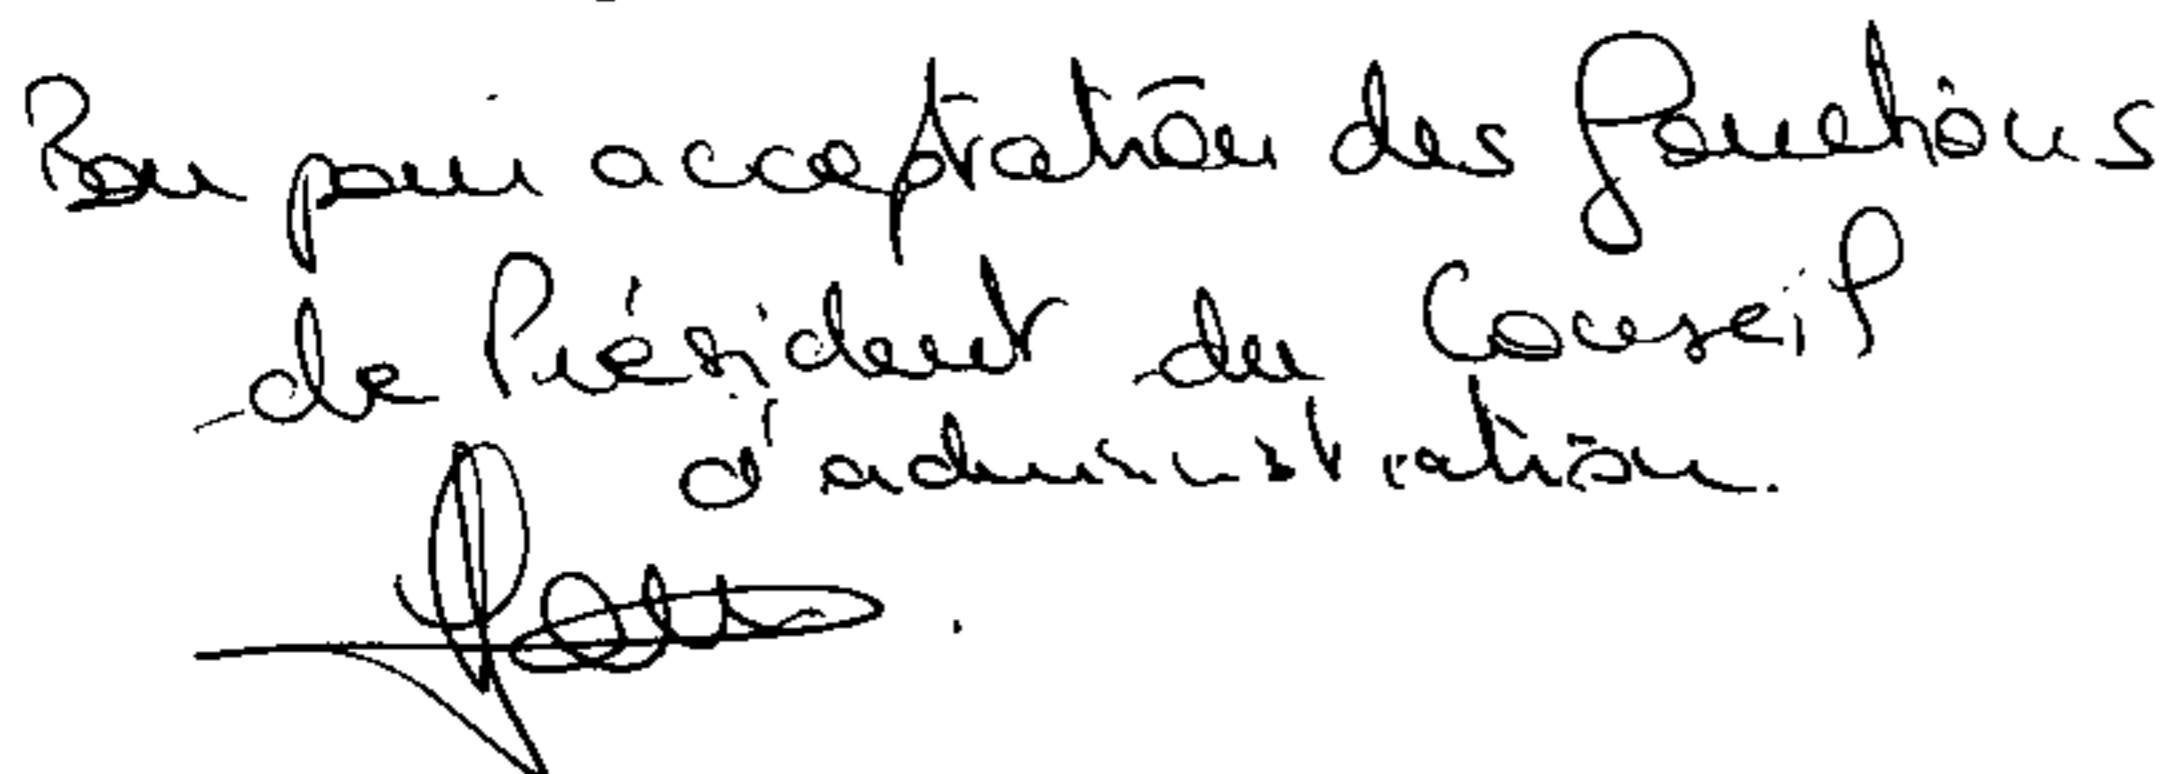 Bon pour acceptation des fonctions
de Président du Conseil
d'administration.